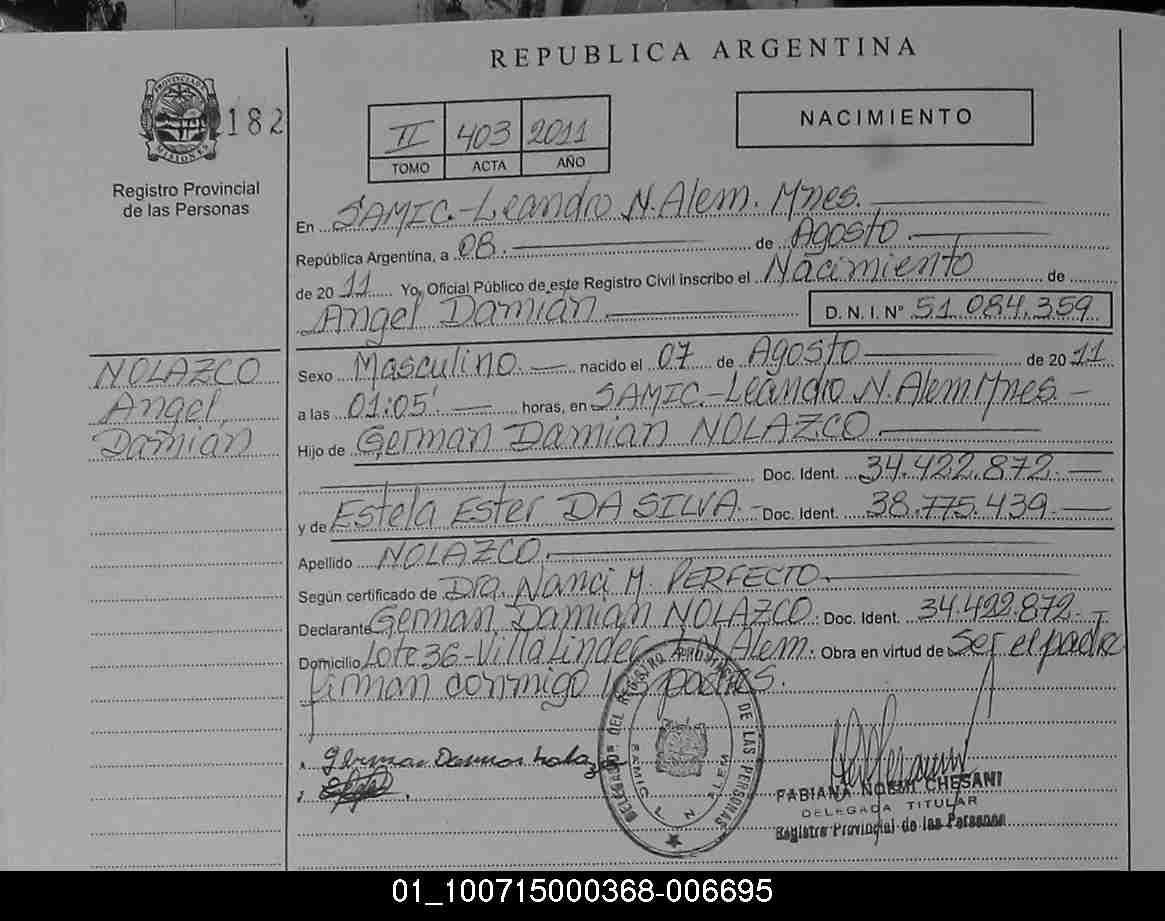 REPUBLICA ARGENTINA
PROVINCIA DE MISIONES
182
Registro Provincial
de las Personas
II 403 2011
TOMO ACTA AÑO
NACIMIENTO
En SAMIC.-Leandro N. Alem. Mnes.
República Argentina, a 08. de Agosto
de 2011 Yo, Oficial Público de este Registro Civil inscribo el Nacimiento de
Angel Damián D. N. I. N° 51.084.359
NOLAZCO
Angel
Damián
Sexo Masculino. nacido el 07 de Agosto de 2011
a las 01:05' horas, en SAMIC.-Leandro N. Alem Mnes.
Hijo de German Damian NOLAZCO
Doc. Ident. 34.422.872
y de Estela Ester DA SILVA.- Doc. Ident. 38.775.439
Apellido NOLAZCO.
Según certificado de Dra. Nanci M. PERFECTO.
Declarante German Damian NOLAZCO. Doc. Ident. 34.422.872.
Domicilio Lote 36-Villa Linder L.N.Alem. Obra en virtud de Ser el padre
firman conmigo los padres.
DEL REGISTRO PROVINCIAL DE LAS PERSONAS
SAMIC L N ALEM
FABIANA NOEMI CHESANI
DELEGADA TITULAR
Registro Provincial de las Personas
01_100715000368-006695